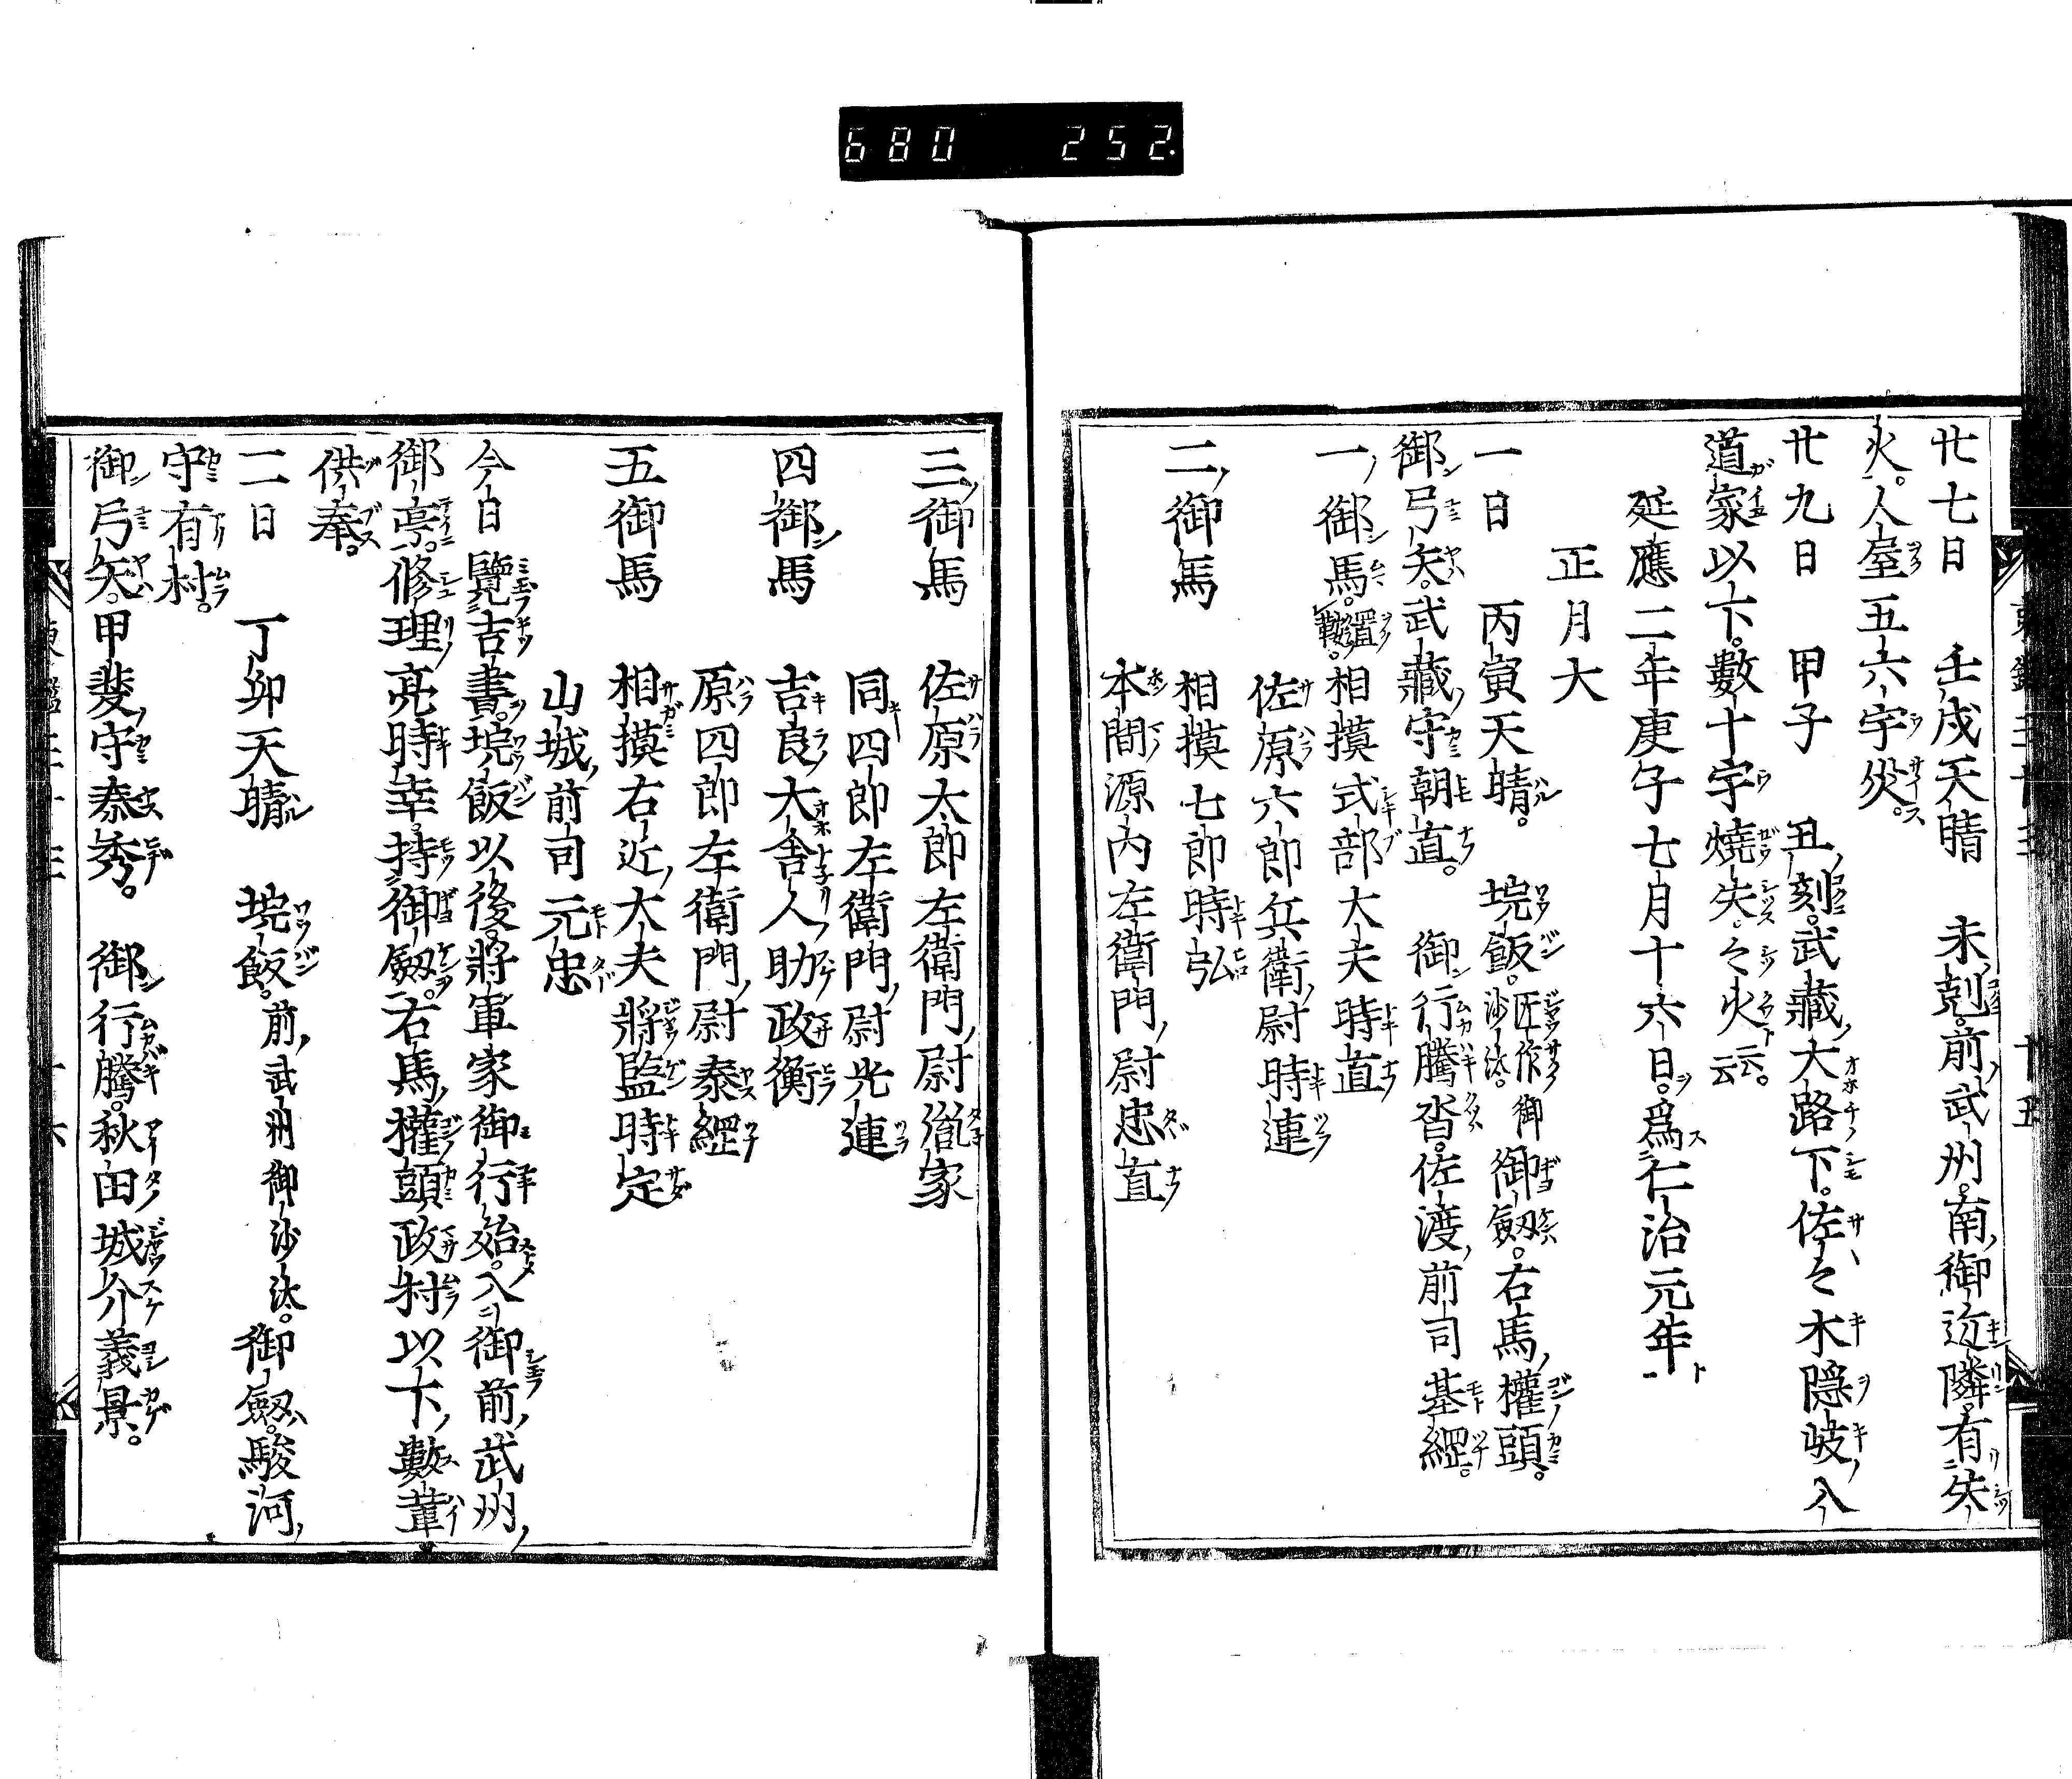 680 252.
廿七日 壬戌天晴 未剋。前武州。南御近隣。有失
火。人屋五六宇災。
廿九日 甲子 丑刻。武藏大路下。佐々木隠岐入
道家以下。數十宇燒失。々火云云。
延應二年庚子七月十六日。爲仁治元年
正月大
一日 丙寅天晴。 埦飯。匠作御沙汰。 御劔。右馬權頭。
御弓矢。武藏守朝直。 御行騰沓。佐渡前司基經。
一御馬。置鞍。 相摸式部大夫時直
佐原六郎兵衛尉時連
二御馬 相摸七郎時弘
本間源内左衛門尉忠直
三御馬 佐原太郎左衛門尉胤家
同四郎左衛門尉光連
四御馬 吉良大舎人助政衡
原四郎左衛門尉泰經
五御馬 相摸右近大夫將監時定
山城前司元忠
今日覽吉書。埦飯以後。將軍家御行始。入御前武州
御亭。修理亮時幸。持御劔。右馬權頭政村以下數輩
供奉。
二日 丁卯天晴 埦飯。前武州御沙汰。御劔。駿河
守有村。
御弓矢。甲斐守泰秀。 御行騰。秋田城介義景。